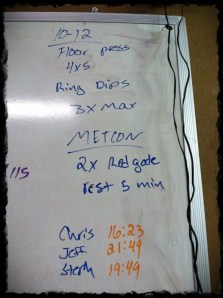 10-12
Floor press
4x5
Ring Dips
3x Max
METCON
115
2x Redgate
rest 5 min
Chris 16:23
Jeff 21:49
19:49